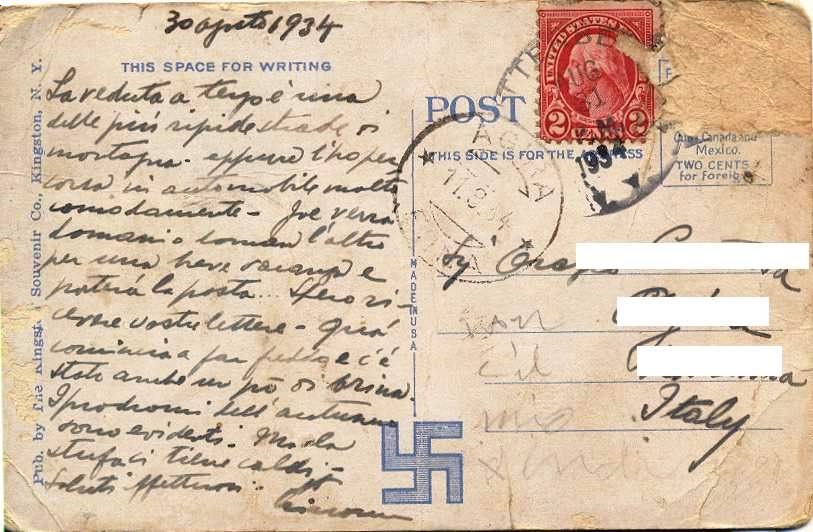 30 agosto 1934
THIS SPACE FOR WRITING
La veduta a tergo è una
delle più ripide strade di
montagna - eppure l'ho per
corsa in automobile molto
comodamente - Joe verrà
domani o doman l'altro
per una breve vacanza e
porterà la posta. Spero ri-
cevere vostre lettere - Qua
comincia a far freddo e c'è
stato anche un pò di brina.
I prodromi dell'autunno
sono evidenti. Ma la
stufa ci tiene caldi -
Saluti affettuosi
Pub. by The Kingst Souvenir Co., Kingston, N. Y.
POST
THIS SIDE IS FOR THE ADDRESS
MADE IN U S A
UNITED STATES
2 2
AUG
31
1934
17.9.34
Cuba, Canada and
Mexico.
TWO CENTS
for Foreig
Italy
mio